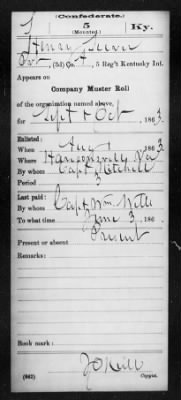 (Confederate.)
5
(Mounted.)
Ky.
Henry
Pvt, (3d) Co. A, 5 Reg't Kentucky Inf.
Appears on
Company Muster Roll
of the organization named above,
for Sept & Oct, 1863
Enlisted:
When Aug 1, 186
Where Va
By whom Capt Mitchell
Period 3
Last paid:
By whom Capt Wm
To what time June 3, 186
Present or absent Present
Remarks:
Book mark:
(642)
Copyist.